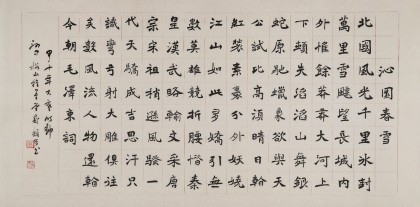 沁園春雪
北國風光千里冰封
萬里雪飄望長城內
外惟餘莽莽大河上
下頓失滔滔山舞銀
蛇原馳蠟象欲與天
公試比高須晴日看
紅裝素裹分外妖嬈
江山如此多嬌引無
數英雄競折腰惜秦
皇漢武略輸文采唐
宗宋祖稍遜風騷一
代天驕成吉思汗只
識彎弓射大雕俱往
矣數風流人物還看
今朝毛澤東詞
甲午年大寒時節